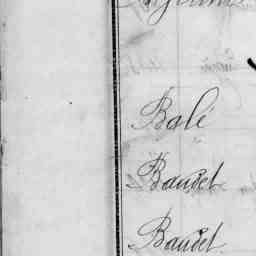 Balé
Baudet
Baudet